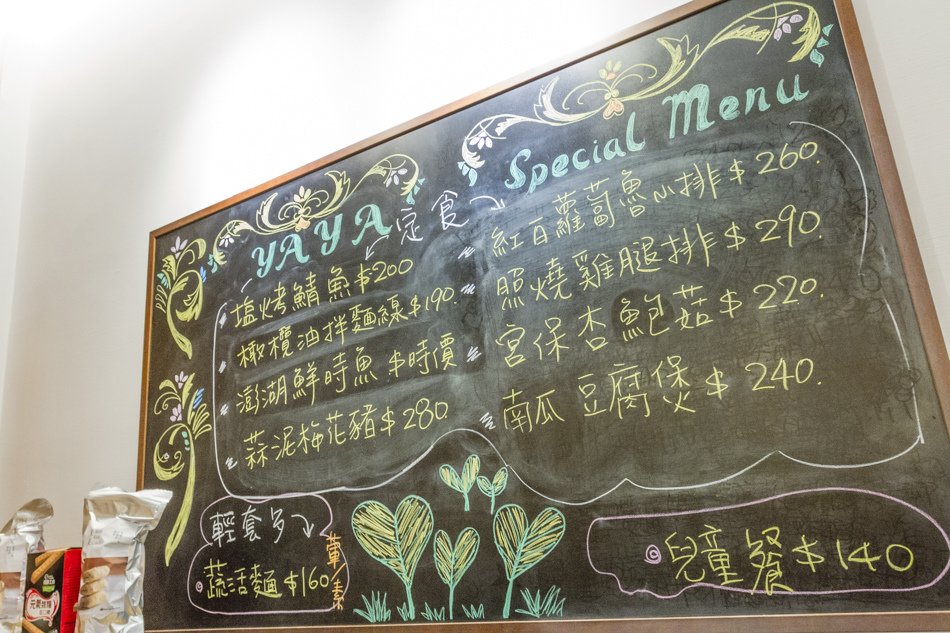 YAYA 定食
Special Menu
塩烤鯖魚 $200
橄欖油拌麵線 $190.
澎湖鮮時魚 $時價
蒜泥梅花豬 $280
紅白蘿蔔魯小排 $260.
照燒雞腿排 $290.
宮保杏鮑菇 $220.
南瓜豆腐煲 $240.
輕套多
蔬活麵 $160
葷/素
兒童餐 $140